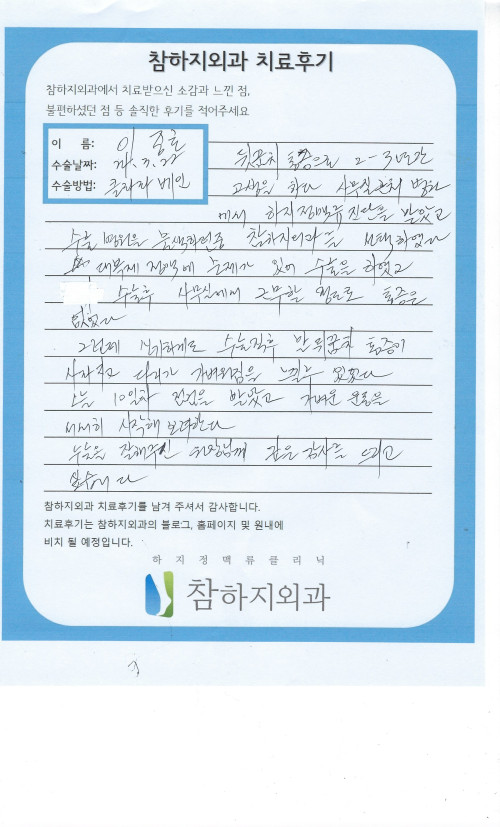 참하지외과 치료후기
참하지외과에서 치료받으신 소감과 느낀 점,
불편하셨던 점 등 솔직한 후기를 적어주세요
이 름: 이
수술날짜: 7. 22
수술방법: 클라리 베인
뒤꿈치 통증으로 2-3년간
고생을 하다 사무실근처 병원
에서 하지정맥류 진단을 받았고
수술 병원을 검색하던중 참하지외과를 선택하였다
대복재 정맥에 문제가 있어 수술을 하였고
수술후 사무실에서 근무할 정도로 통증은
없었다
그런데 신기하게도 수술직후 발뒤꿈치 통증이
사라지고 다리가 가벼워짐을 느낄수 있었다
오늘 10일차 점검을 받았고 가벼운 운동을
서서히 시작해 보려한다
수술을 잘해주신 원장님께 깊은 감사를 드리고
싶습니다
참하지외과 치료후기를 남겨 주셔서 감사합니다.
치료후기는 참하지외과의 블로그, 홈페이지 및 원내에
비치 될 예정입니다.
하지정맥류클리닉
참하지외과